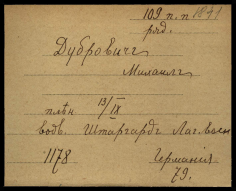 109 п. п 1841
ряд.
Дубровичъ
Михаилъ
плѣн 13/IX
водв. Штаргардъ Лаг. Вьен
1178 Германія
79.